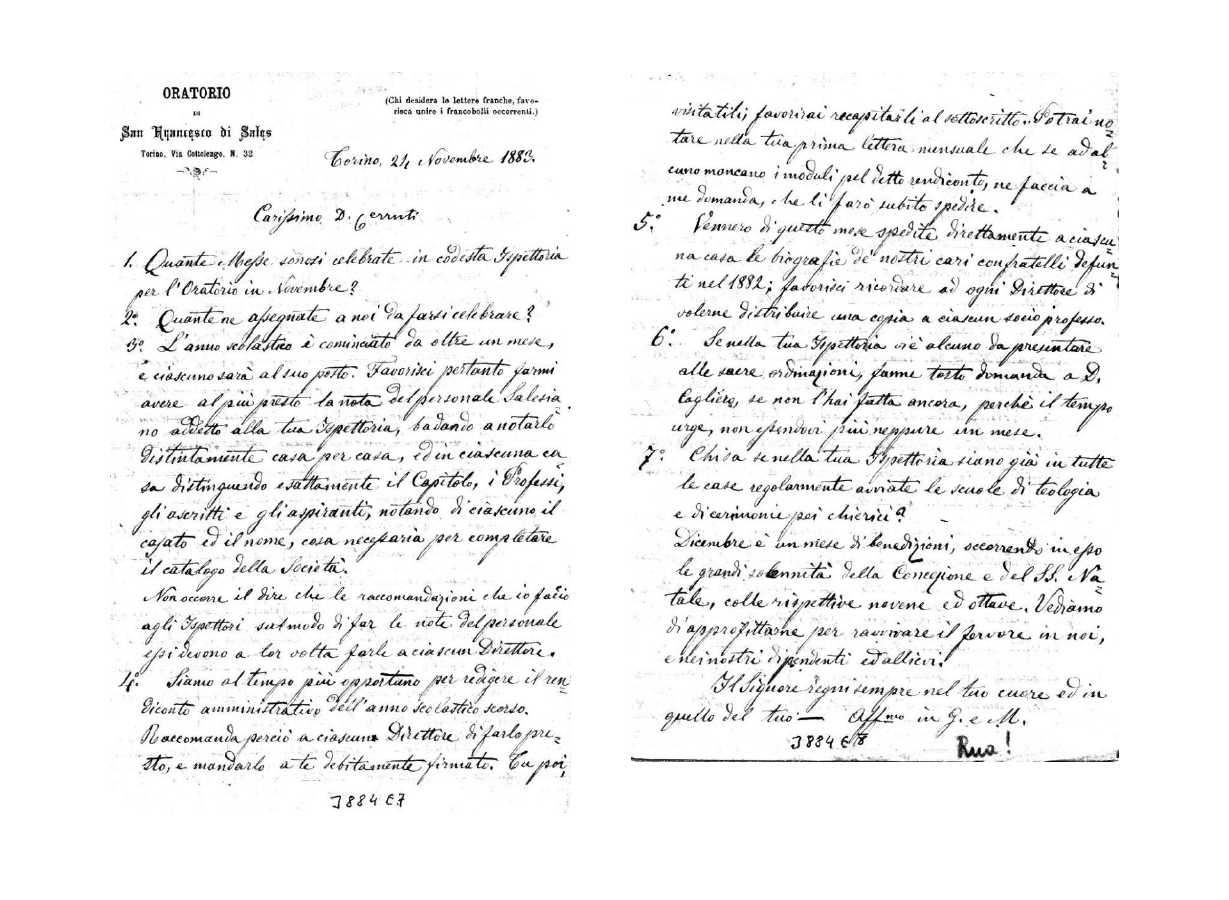 ORATORIO
DI
San Francesco di Sales
Torino, Via Cottolengo, N. 32
(Chi desidera le lettere franche, favo-
risca unire i francobolli occorrenti.)
Torino, 24 Novembre 1883.
Carissimo D. Cerruti
1. Quante Messe sonosi celebrate in codesta Ispettoria
per l'Oratorio in Novembre?
2.° Quante ne assegnate a noi da farsi celebrare?
3.° L'anno scolastico è cominciato da oltre un mese,
e ciascuno sarà al suo posto. Favorisci pertanto farmi
avere al più presto la nota del personale Salesia
no addetto alla tua Ispettoria, badando a notarlo
distintamente casa per casa, ed in ciascuna ca
sa distinguendo esattamente il Capitolo, i Professi,
gli ascritti e gli aspiranti, notando di ciascuno il
casato ed il nome, cosa necessaria per completare
il catalogo della Società.
Non occorre il dire che le raccomandazioni che io facio
agli Ispettori sul modo di far le note del personale
essi devono a lor volta farle a ciascun Direttore.
4.° Siamo al tempo più opportuno per redigere il ren=
diconto amministrativo dell'anno scolastico scorso.
Raccomanda perciò a ciascuno Direttore di farlo pre=
sto, e mandarlo a te debitamente firmato. Tu poi,
3884 E7
visitatili, favorirai recapitarli al sottoscritto. Potrai no=
tare nella tua prima lettera mensuale che se ad al=
cuno mancano i moduli pel detto rendiconto, ne faccia a
me domanda, che li farò subito spedire.
5.° Vennero di questo mese spedite direttamente a ciascu
na casa le biografie de' nostri cari confratelli defun=
ti nel 1882; favorisci ricordare ad ogni Direttore di
volerne distribuire una copia a ciascun socio professo.
6.° Se nella tua Ispettoria v'è alcuno da presentare
alle sacre ordinazioni, fanne tosto domanda a D.
Cagliero, se non l'hai fatta ancora, perchè il tempo
urge, non essendovi più neppure un mese.
7.° Chi sa se nella tua Ispettoria siano già in tutte
le case regolarmente avviate le scuole di teologia
e di cerimonie pei chierici?
Dicembre è un mese di benedizioni, occorrendo in esso
le grandi solennità della Concezione e del SS. Na=
tale, colle rispettive novene ed ottave. Vediamo
d'approfittarne per ravvivare il fervore in noi,
e nei nostri dipendenti ed allievi.
Il Signore regni sempre nel tuo cuore ed in
quello del tuo — Aff.mo in G. e M.
3884 E8
Rua!